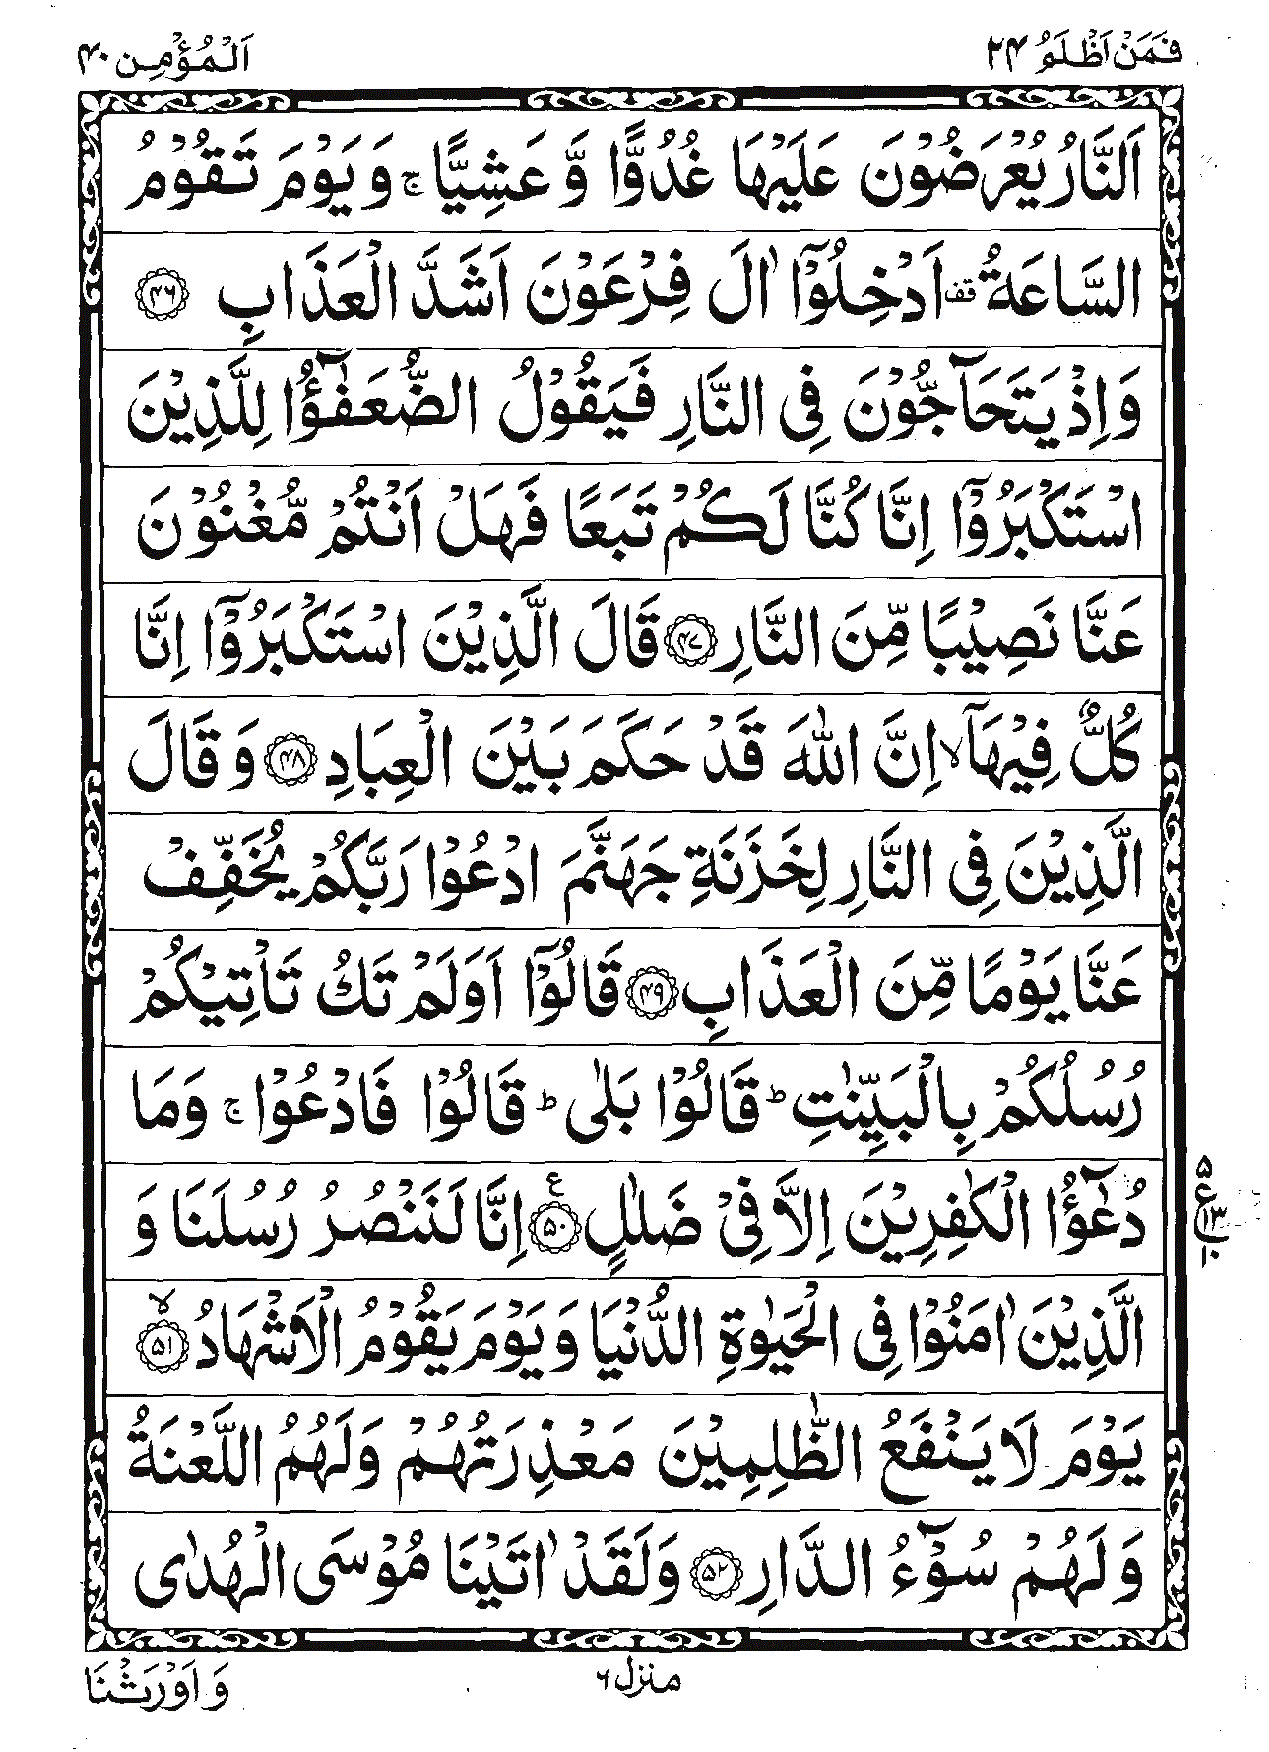 فَمَنْ اَظْلَمُ ۲۴
اَلْمُؤْمِن ۴۰
اَلنَّارُ يُعْرَضُوْنَ عَلَيْهَا غُدُوًّا وَّ عَشِيًّا ۚ وَ يَوْمَ تَقُوْمُ
السَّاعَةُ قف اَدْخِلُوْۤا اٰلَ فِرْعَوْنَ اَشَدَّ الْعَذَابِ ﴿۴۶﴾
وَ اِذْ يَتَحَآجُّوْنَ فِى النَّارِ فَيَقُوْلُ الضُّعَفٰٓؤُا لِلَّذِيْنَ
اسْتَكْبَرُوْۤا اِنَّا كُنَّا لَكُمْ تَبَعًا فَهَلْ اَنْتُمْ مُّغْنُوْنَ
عَنَّا نَصِيْبًا مِّنَ النَّارِ ﴿۴۷﴾ قَالَ الَّذِيْنَ اسْتَكْبَرُوْۤا اِنَّا
كُلٌّ فِيْهَاۤ ۙ اِنَّ اللّٰهَ قَدْ حَكَمَ بَيْنَ الْعِبَادِ ﴿۴۸﴾ وَ قَالَ
الَّذِيْنَ فِى النَّارِ لِخَزَنَةِ جَهَنَّمَ ادْعُوْا رَبَّكُمْ يُخَفِّفْ
عَنَّا يَوْمًا مِّنَ الْعَذَابِ ﴿۴۹﴾ قَالُوْۤا اَوَلَمْ تَكُ تَاْتِيْكُمْ
رُسُلُكُمْ بِالْبَيِّنٰتِ ؕ قَالُوْا بَلٰى ؕ قَالُوْا فَادْعُوْا ۚ وَمَا
دُعٰٓؤُا الْكٰفِرِيْنَ اِلَّا فِىْ ضَلٰلٍ ﴿۵۰﴾ ع اِنَّا لَنَنْصُرُ رُسُلَنَا وَ
۵
ع
۱۳
۱۰
الَّذِيْنَ اٰمَنُوْا فِى الْحَيٰوةِ الدُّنْيَا وَ يَوْمَ يَقُوْمُ الْاَشْهَادُ ﴿۵۱﴾ ۙ
يَوْمَ لَا يَنْفَعُ الظّٰلِمِيْنَ مَعْذِرَتُهُمْ وَلَهُمُ اللَّعْنَةُ
وَ لَهُمْ سُوْٓءُ الدَّارِ ﴿۵۲﴾ وَلَقَدْ اٰتَيْنَا مُوْسَى الْهُدٰى
منزل ۶
وَ اَوْرَثْنَا